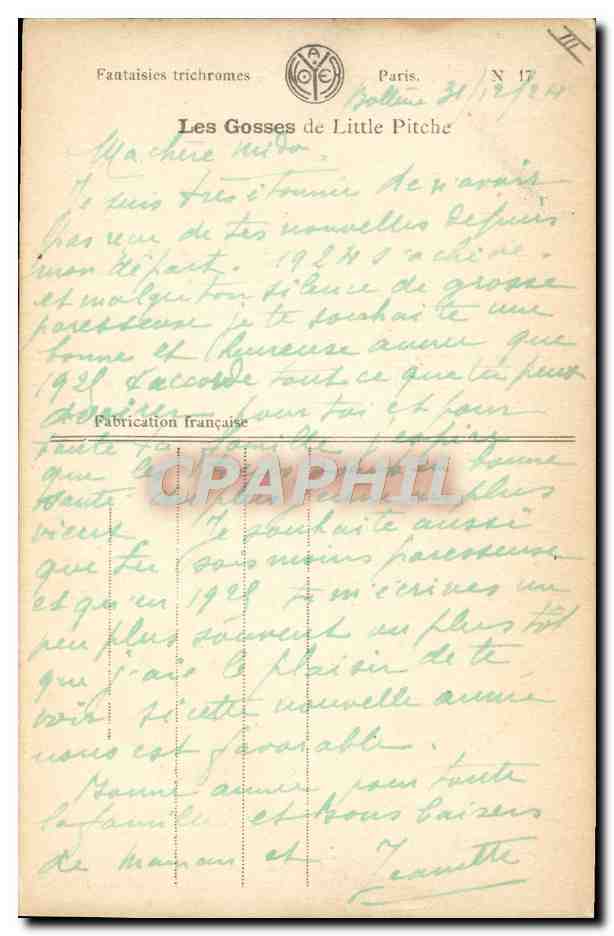 III
Fantaisies trichromes Paris. N 17
Bollène 31/12/24
Les Gosses de Little Pitche
Ma chère Mido
Je suis très étonnée de n'avoir
pas reçu de tes nouvelles depuis
mon départ. 1924 s'achève
et malgré ton silence de grosse
paresseuse je te souhaite une
bonne et heureuse année que
1925 t'accorde tout ce que tu peux
désirer pour toi et pour
Fabrication française
toute ta famille j'espère
que bonne
santé plus
vient Je souhaite aussi
que tu sois moins paresseuse
et qu'en 1925 tu m'écrives un
peu plus souvent ou plus tôt
que j'aie le plaisir de te
voir si cette nouvelle année
nous est favorable.
Bonne année pour toute
la famille et bons baisers
de maman et Jeanette
CPAPHIL